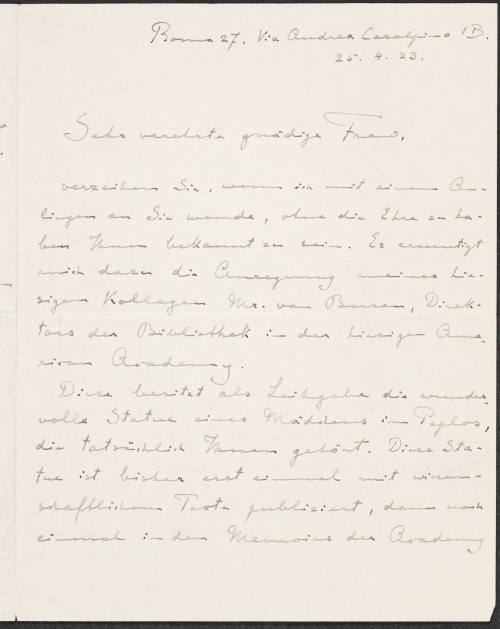 Roma 27. Via Andrea Cesalpino 1B.
25. 4. 23.
Sehr verehrte gnädige Frau,
verzeihen Sie, wenn ich mit einem An-
liegen an Sie wende, ohne die Ehre zu ha-
ben Ihnen bekannt zu sein. Es ermutigt
mich dazu die Anregung meines hie-
sigen Kollegen Mr. van Buren, Direk-
tors der Bibliothek in der hiesigen Ame-
rican Academy.
Diese besitzt als Leihgabe die wunder-
volle Statue eines Mädchens im Peplos,
die tatsächlich Ihnen gehört. Diese Sta-
tue ist bisher erst einmal mit wissen-
schaftlichem Texte publiziert, dann noch
einmal in den Memoirs der Academy